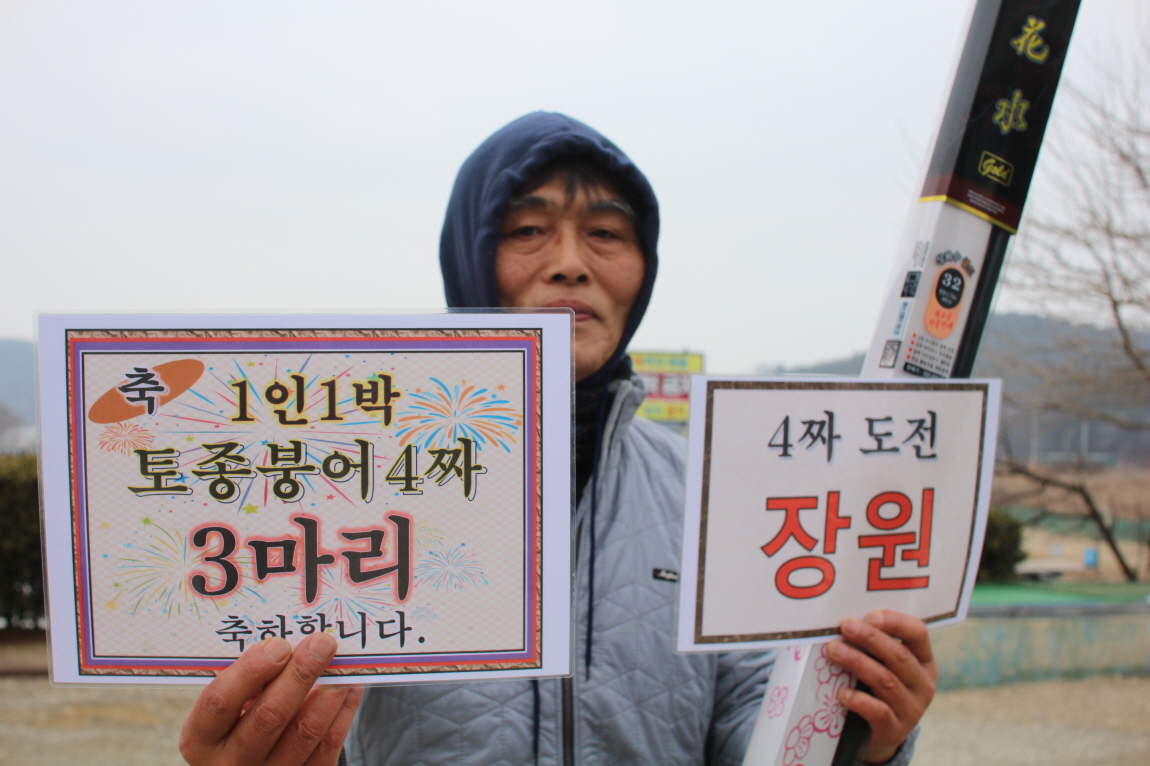 축
1인1박
토종붕어4짜
3마리
축하합니다.
4짜 도전
장원
花
水
Gold
32